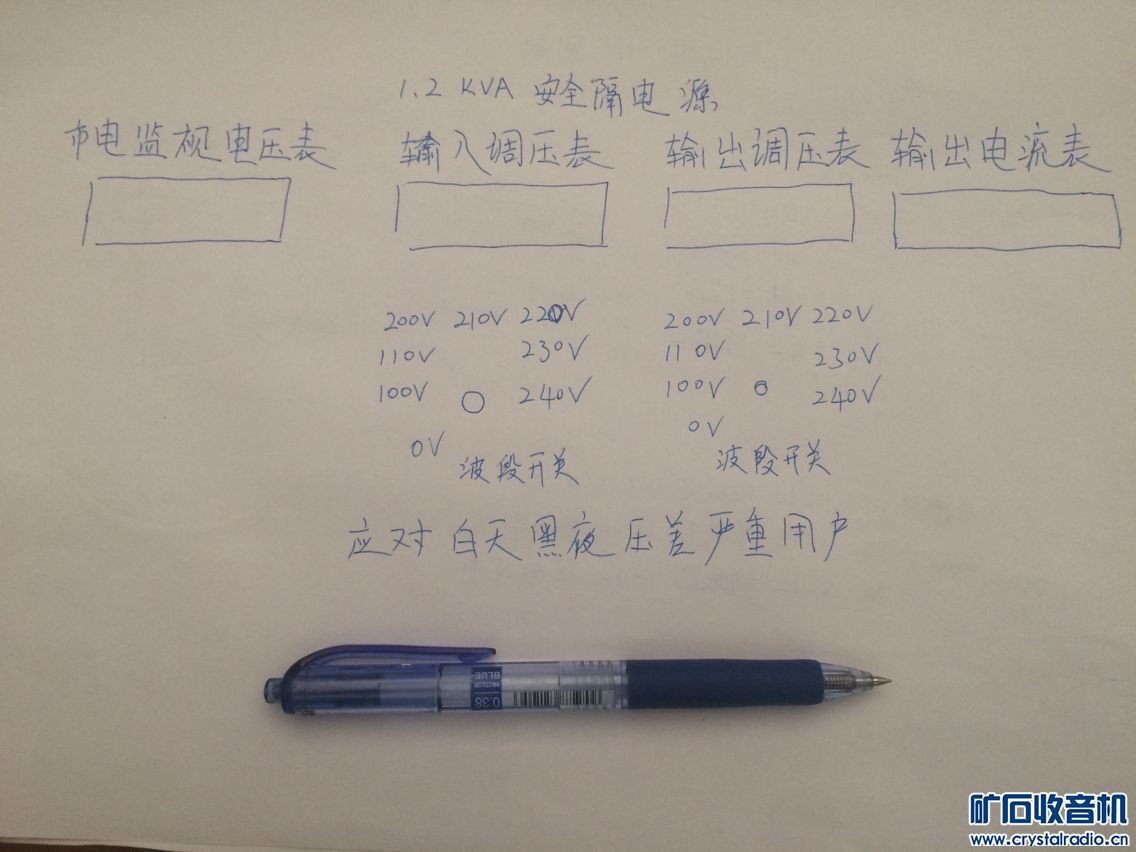 1.2 KVA 安全隔电源
市电监视电压表 输入调压表 输出调压表 输出电流表
200V 210V 220V 200V 210V 220V
110V 230V 110V 230V
100V 240V 100V 240V
0V 0V
波段开关 波段开关
应对白天黑夜压差严重用户
INK COLOR
BLUE
0.38
矿石收音机
www.crystalradio.cn